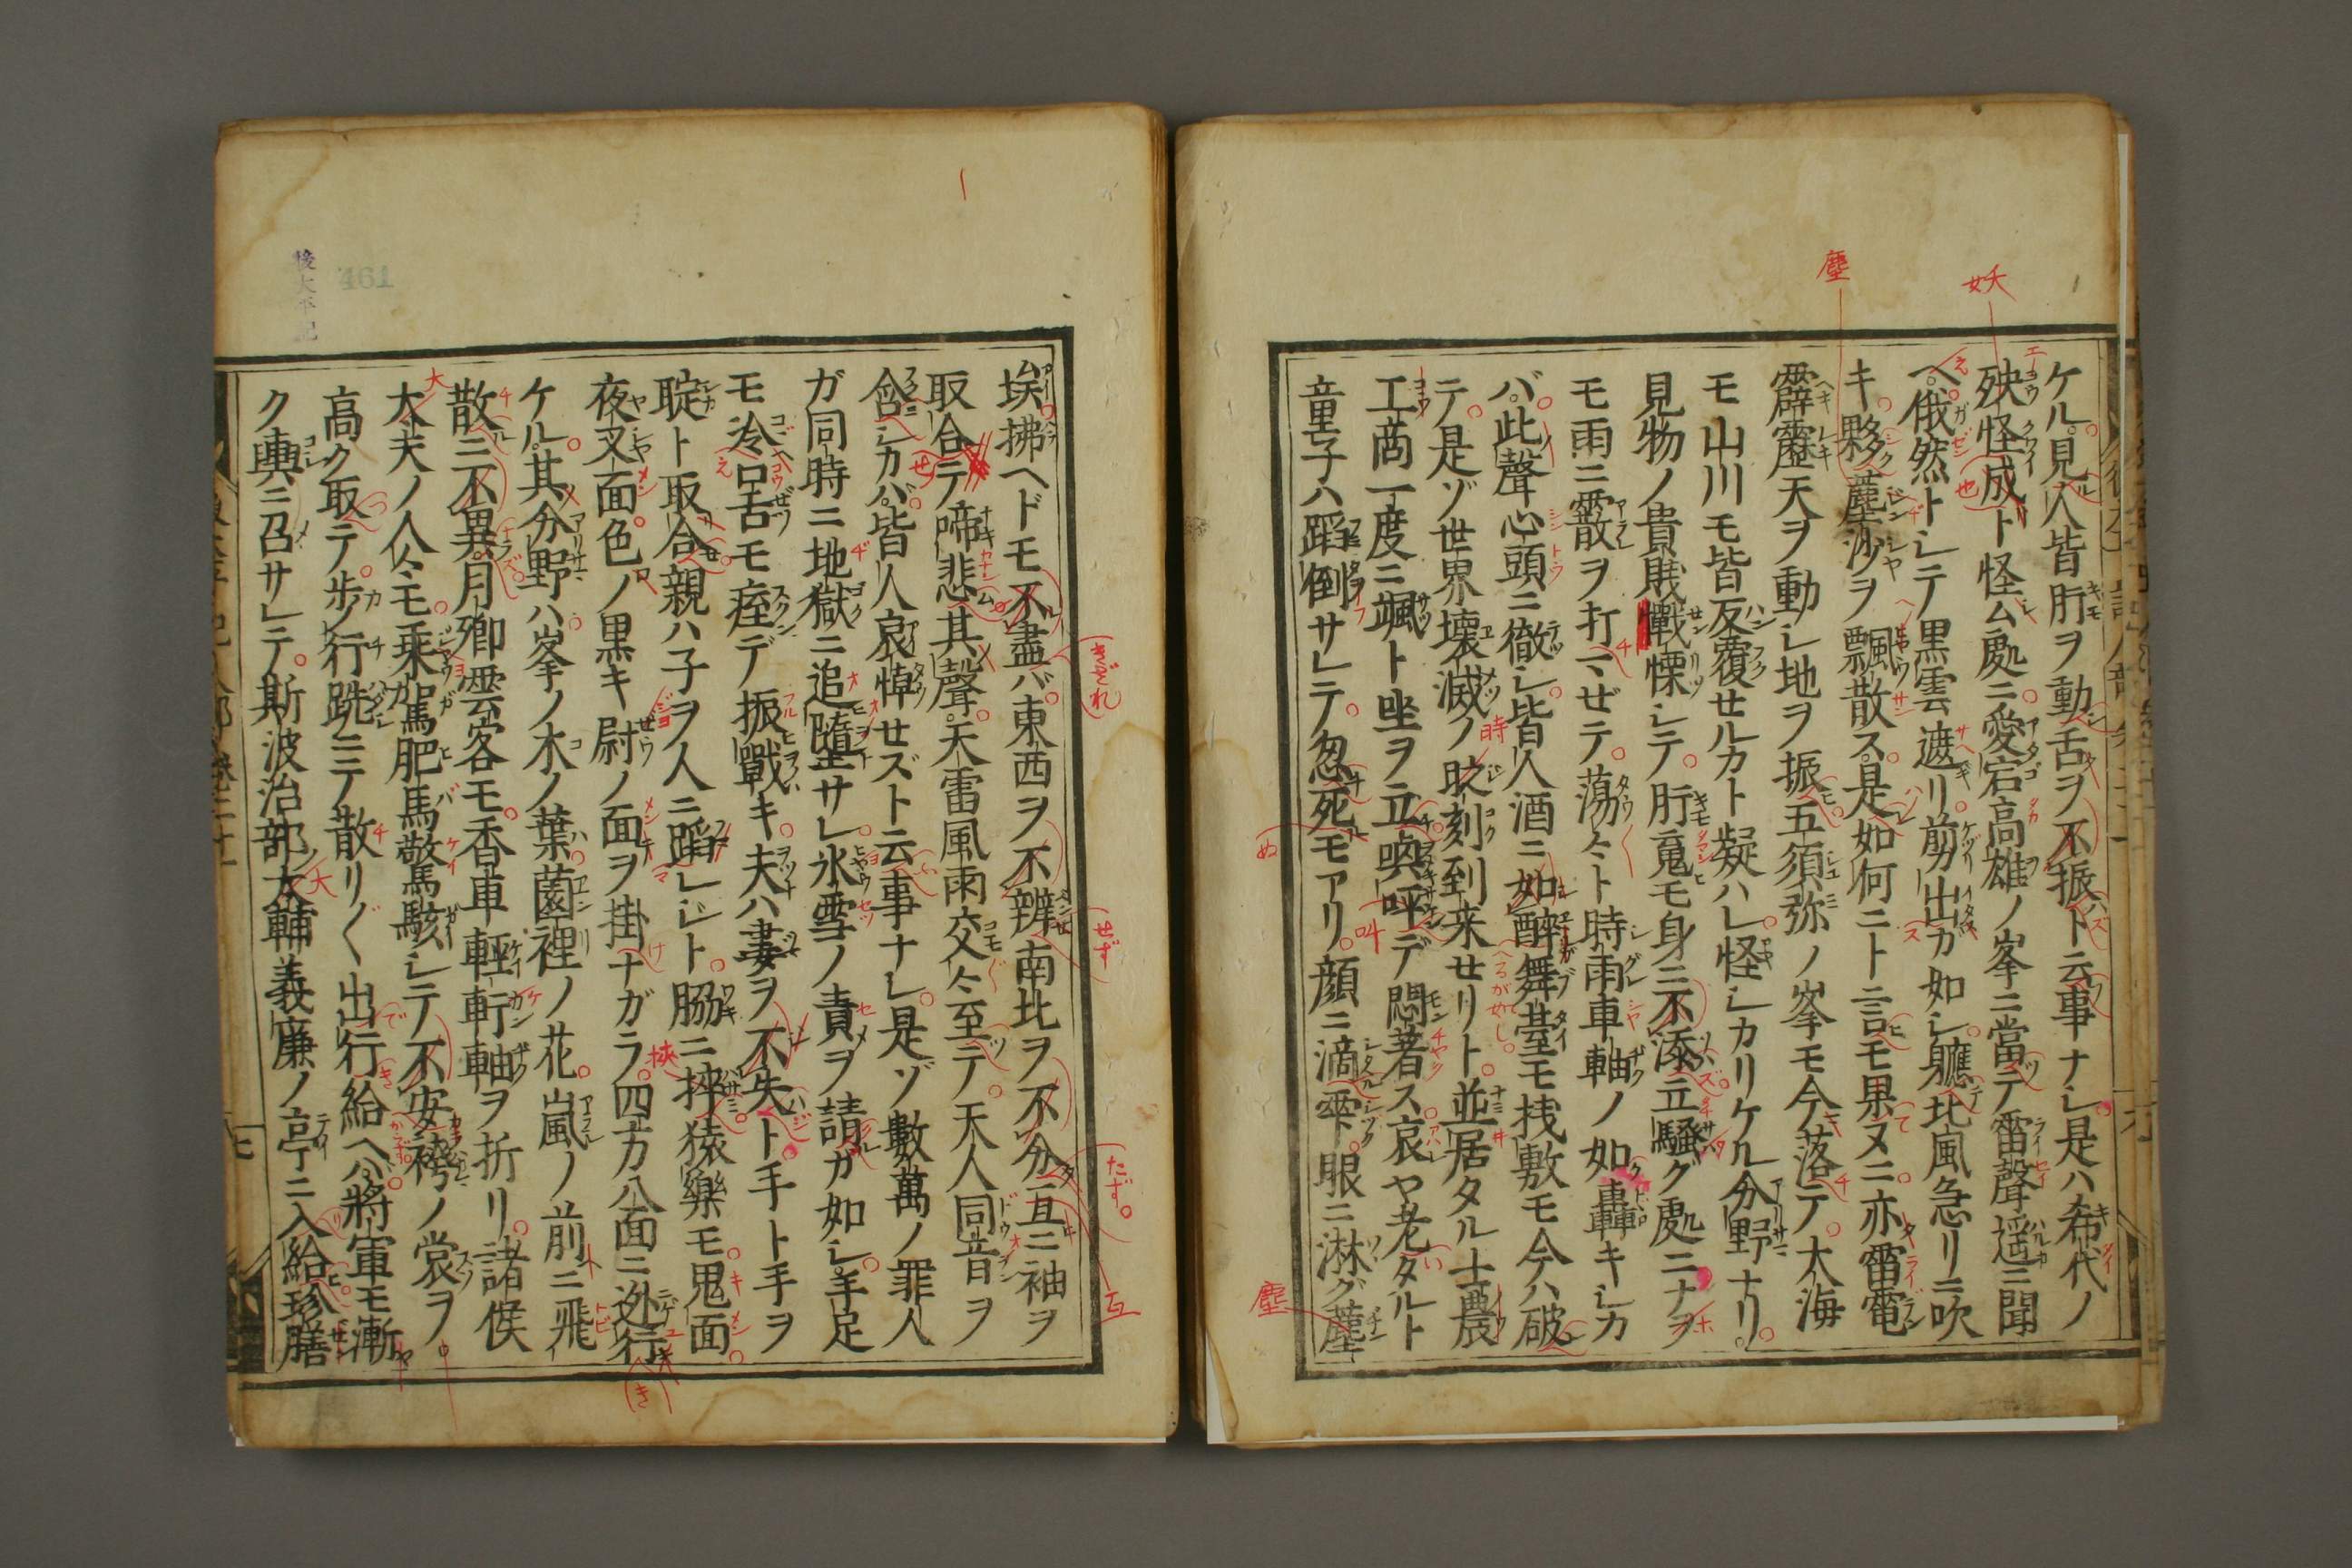 ケル見人皆肝ヲ動シ舌ヲ不振ト云事ナレ是ハ希代ノ
殃怪成ト怪ム處ニ愛宕高雄ノ峯ニ當テ雷聲遥ニ聞
ヘ俄然トシテ黒雲遮リ剪出ガ如シ軈テ北風急リニ吹
キ夥塵沙ヲ飄散ス是如何ニト言モ果ヌニ亦雷電
霹靂天ヲ動シ地ヲ振五須弥ノ峯モ今落テ大海
モ山川モ皆反覆セルカト疑ハレ怪シカリケル分野ナリ
見物ノ貴賎戰慄シテ肝魂モ身ニ不添立騒グ處ニナヲ
モ雨ニ霰ヲ打マゼテ蕩々ト時雨車軸ノ如轟キシカ
バ此聲心頭ニ徹シ皆人酒ニ如醉舞臺モ桟敷モ今ハ破
テ是ゾ世界壊滅ノ時刻到来セリト並居タル士農
工商一度ニ颯ト坐ヲ立喚呼デ悶著ス哀ヤ老タルト
童子ハ蹈倒サレテ忽死モアリ顔ニ滴雫眼ニ淋グ塵
埃拂ヘドモ不盡バ東西ヲ不辨南北ヲ不分互ニ袖ヲ
取合テ啼悲其聲天雷風雨交々至テ天人同音ヲ
含シカバ皆人哀悼セズト云事ナレ是ゾ數萬ノ罪人
ガ同時ニ地獄ニ追墮サレ氷雪ノ責ヲ請ガ如シ手足
モ冷口舌モ痙デ振戰キ夫ハ妻ヲ不失ト手ト手ヲ
聢ト取合親ハ子ヲ人ニ蹈レジト脇ニ挟猿樂モ鬼面
夜叉面色ノ黒キ尉ノ面ヲ掛ナガラ四方八面ニ迯行
ケル其分野ハ峯ノ木ノ葉薗裡ノ花嵐ノ前ニ飛
散ニ不異月卿雲客モ香車輕軒軸ヲ折リ諸侯
大夫ノ人々モ乗駕肥馬驚駭シテ不安袴ノ裳ヲ
高ク取テ歩行跣ニテ散リ〱出行給ヘバ將軍モ漸
ク輿ニ召サレテ斯波治部大輔義廉ノ亭ニ入給珍膳
妖
塵
塵
叫
ぬ
時
きざれ
せず
たず。
互
挟
大
大
き
461
後太平記